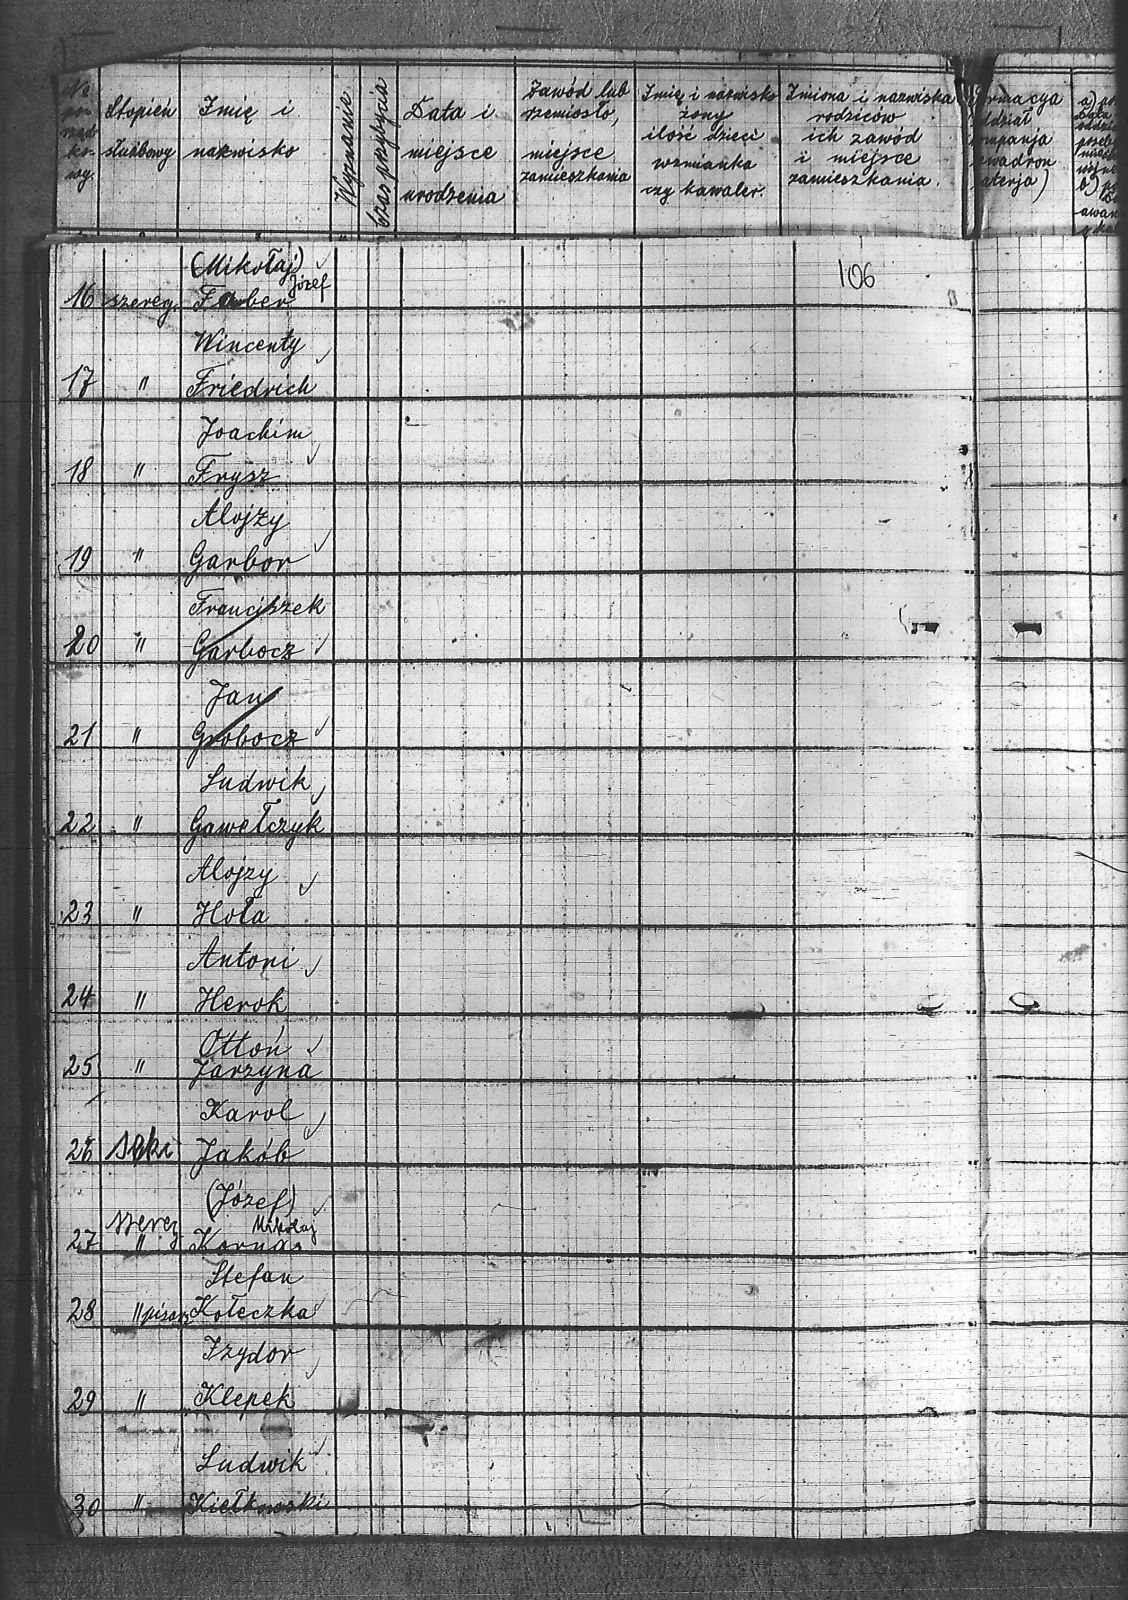 No
po-
rząd
ko-
wy.
Stopień
służbowy
Imię i
nazwisko
Wyznanie
Czas przybycia
Data i
miejsce
urodzenia
Zawód lub
rzemiosło,
miejsce
zamieszkania
Imię i nazwisko
żony
ilość dzieci
wzmianka
czy kawaler.
Imiona i nazwiska
rodziców
ich zawód
i miejsce
zamieszkania.
rmacya
ddział
mpanja
wadron
aterja)
a) po
b) p
awan
106
(Mikołaj)
Józef
16 szereg. Farber
Wincenty
17 " Friedrich
Joachim
18 " Frysz
Alojzy
19 " Garbor
Franciszek
20 " Garbocz
Jan
21 " Grobocz
Ludwik
22 " Gawełczyk
Alojzy
23 " Hoła
Antoni
24 " Herok
Ottoń
25 " Jarzyna
Karol
26 Jakób
(Józef)
szereg Mikołaj
27 " Kornas
Stefan
28 " pisarz Kołeczka
Izydor
29 " Klepek
Ludwik
30 " Kiełkowski